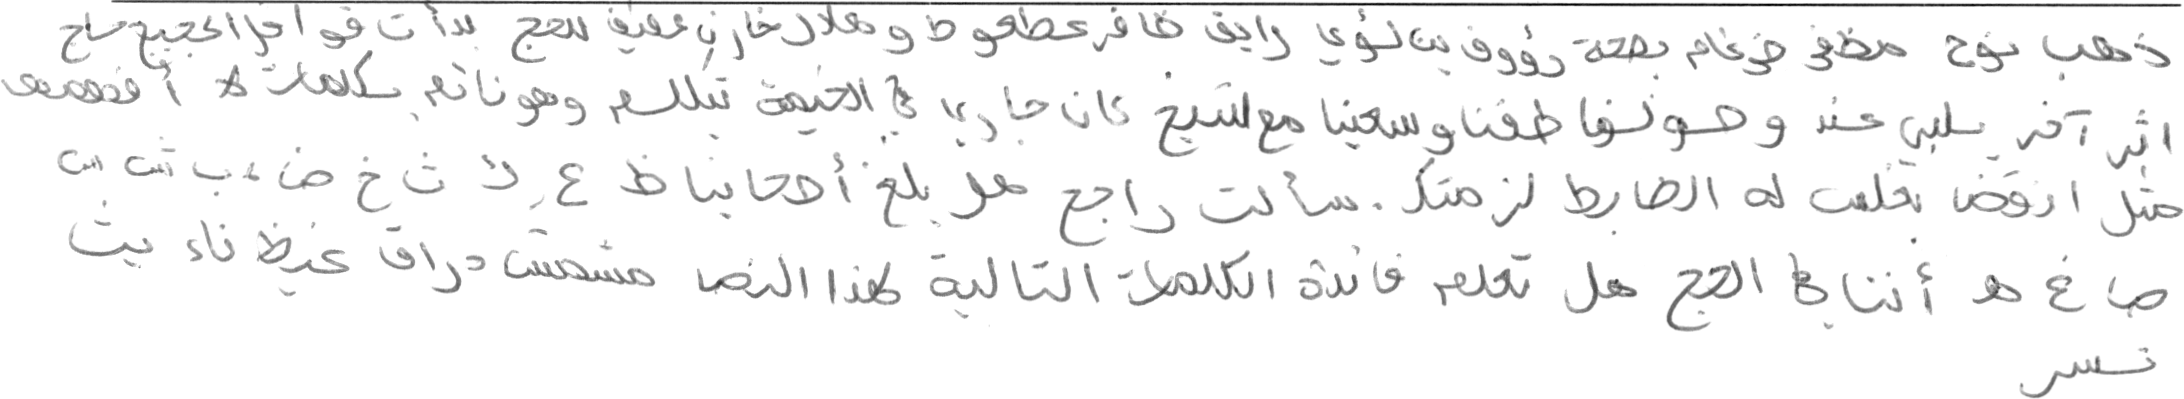 ذهب نوح مظفر ضرغام بصحة رؤوف بن لؤي رايق ظافر عطعوط وهلال خازن عفيف للحج بدأت قوافل الحجيج ساج
اثر آخر يلبي عند وصولنا طفنا وسعينا مع الشيخ كان جاري في الخيمة يتكلم وهو نائم بكلمات لا أفهمها
مثل انوقضا فقلت له الضابط لزمتك. سألت راجح هل بلغ أصحابنا ظ ع لا ث خ ض ء ب
ص غ ه أننا في الحج هل تعلم فائدة الكلمات التالية لهذا النص مشمش دراق غيظ ناء يث